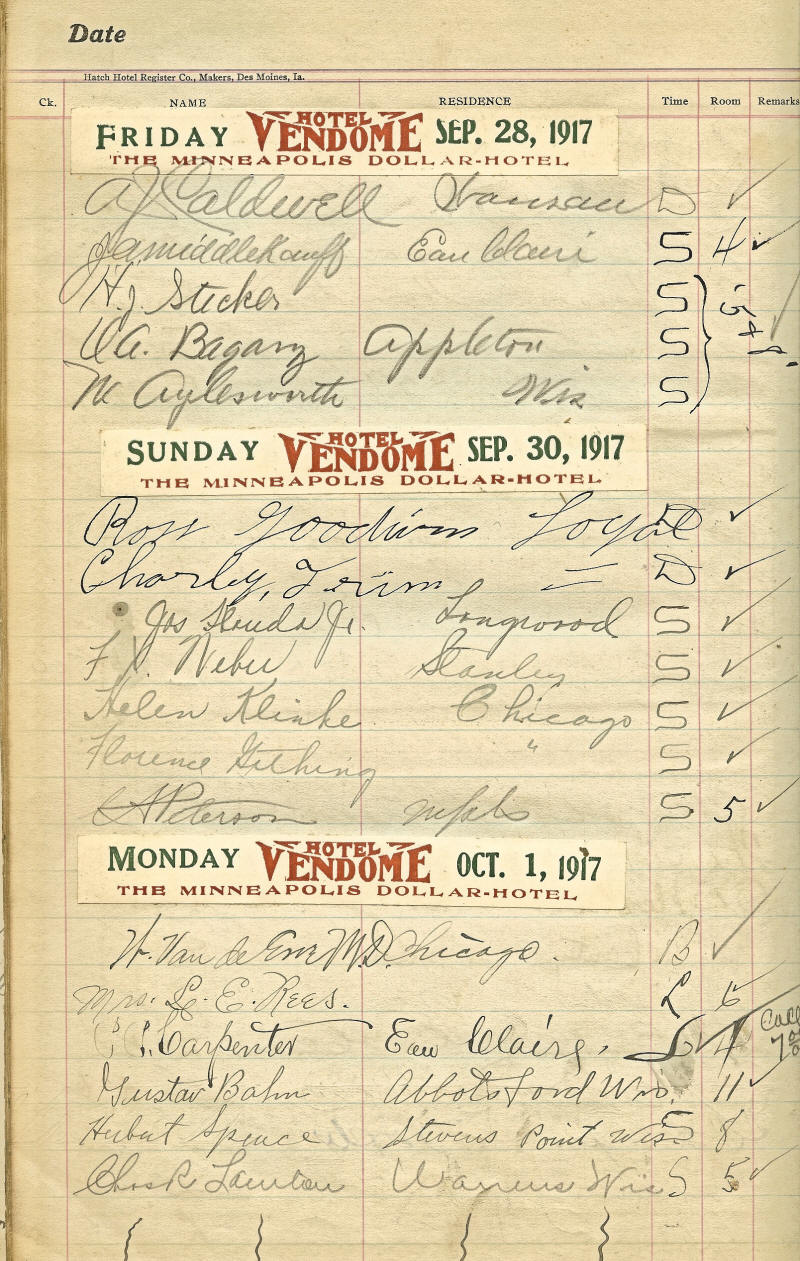 Date
Hatch Hotel Register Co., Makers, Des Moines, Ia.
Ck. NAME RESIDENCE Time Room Remarks
FRIDAY HOTEL VENDOME SEP. 28, 1917
THE MINNEAPOLIS DOLLAR-HOTEL
A J Caldwell D ✓
J A Middlekauff Eau Claire S 4 ✓
H. J. Stecker S
Appleton S
M Aylesworth Wis S
SUNDAY HOTEL VENDOME SEP. 30, 1917
THE MINNEAPOLIS DOLLAR-HOTEL
Ross Goodwin Loyal D ✓
Charly D ✓
Jos Jr. Longwood S ✓
F Weber Stanley S ✓
Helen Klinke Chicago S ✓
Florence " S ✓
Peterson Mpls S 5 ✓
MONDAY HOTEL VENDOME OCT. 1, 1917
THE MINNEAPOLIS DOLLAR-HOTEL
Van de M.D. Chicago. B ✓
Mrs. L. E. Rees. L 6
Carpenter Eau Claire, 4
Gustav Bahn Abbotsford Wis. 11 ✓
Herbert Spence Stevens Point Wis S 8
Chas R Lawton Warrens Wis S 5 ✓